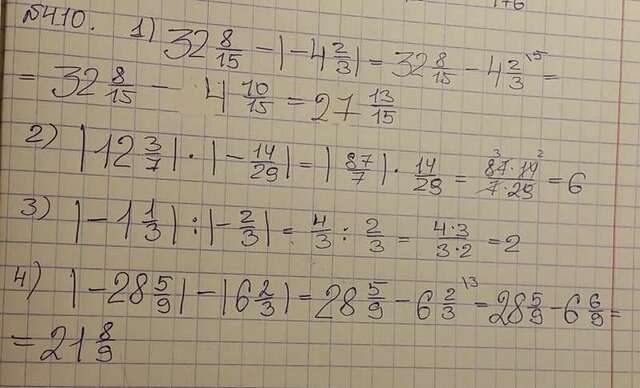 176
№410. 1) 32 8/15 - |-4 2/3| = 32 8/15 - 4 2/3 \5 =
= 32 8/15 - 4 10/15 = 27 13/15
2) |12 3/7| · |-14/29| = |87/7| · 14/29 = 87 3 · 14 2 / 7 · 29 = 6
3) |-1 1/3| : |-2/3| = 4/3 : 2/3 = 4·3/3·2 = 2
4) |-28 5/9| - |6 2/3| = 28 5/9 - 6 2/3 \3 = 28 5/9 - 6 6/9 =
= 21 8/9